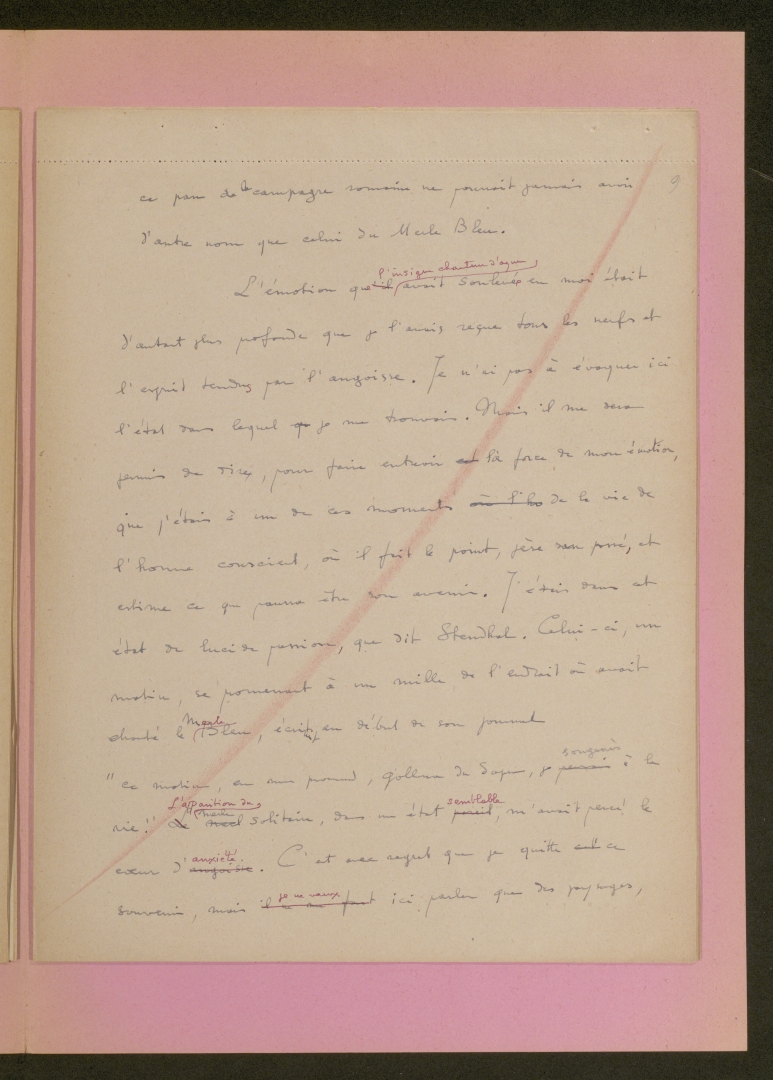 9
ce pan de la campagne romaine ne pourrait jamais avoir
d'autre nom que celui du Merle Bleu.
l'insigne chanteur d'azur
L'émotion qu'il avait soulevée en moi était
d'autant plus profonde que je l'avais reçue tous les nerfs et
l'esprit tendus par l'angoisse. Je n'ai pas à évoquer ici
l'état dans lequel je me trouvais. Mais il me sera
permis de dire, pour faire entrevoir la force de mon émotion,
que j'étais à un de ces moments de la vie de
l'homme conscient, où il fait le point, pèse son passé, et
estime ce que pourra être son avenir. J'étais dans cet
état de lucide passion, que dit Stendhal. Celui-ci, un
matin, se promenant à un mille de l'endroit où avait
Merle
chanté le Bleu, écrit, au début de son journal
songeais
"ce matin, en me, je pensais à la
L'apparition du semblable
vie!" Le merle solitaire, dans un état pareil, m'avait percé le
anxiété.
cœur d'angoisse. C'est avec regret que je quitte ce
je ne veux
souvenir, mais il ne faut ici parler que des paysages,